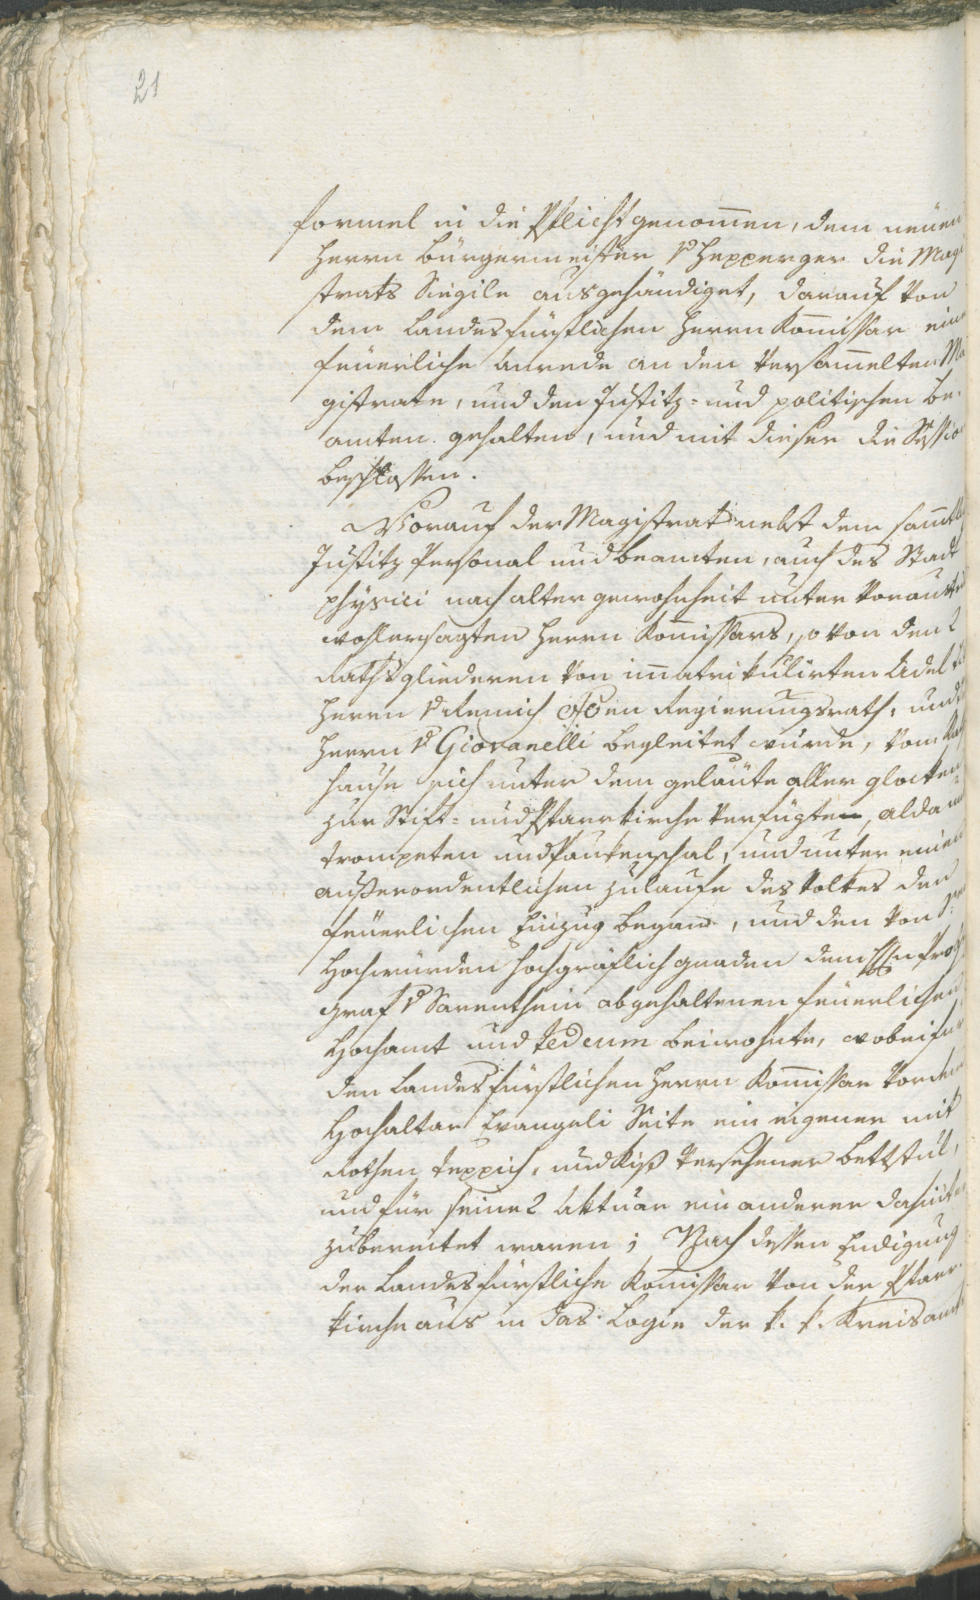 21
formel in die Pflicht genom̄en, dem neüen
Herrn Bürgermeister v Hepperger die Magi
strats Sigile ausgehändiget, darauf von
dem Landesfürstlichen Herrn Kom̄issar eine
feüerliche Anrede an den versam̄elten Ma
gistrate, und den Justitz= und politischen Be=
amten gehalten, und mit dieser die Session
beschlossen.
Worauf der Magistrat nebst dem sam̄tl
Justitz Personal und Beamten, auch des Stadt
physici nach alter gewohnheit unter
wohlersagten Herrn Kom̄issars, so von den 2
Rathsgliederen von im̄atrikulirten Adel
Herrn v Remich Regierungsrath, und
Herrn v Giovanelli begleitet wurde, vom Rath
hause sich unter dem geläute aller glocken
zur Stift= und Pfarrkirche verfügten, alda
trompeten und Paukenschal, und unter einen
außerordentlichen Zulaufe des Volkes den
feüerlichen Einzug began, und den von
Hochwürden hochgräflich gnaden dem Probst
Graf v Sarenthein abgehaltenen feüerlichen
Hochamt und tedeum beiwohnte, wobei für
den Landesfürstlichen Herrn Kom̄issar vor dem
Hochaltar Evangeli Seite ein eigener mit
Rothen teppich, und Kiß versehener Bettstul,
und für seine 2 Aktuar ein anderer dahinter
zubereitet waren; Nach dessen Endigung
der Landesfürstliche Kom̄issar von der Pfarr=
kirche aus in das Logie der k. k. Kreisamts